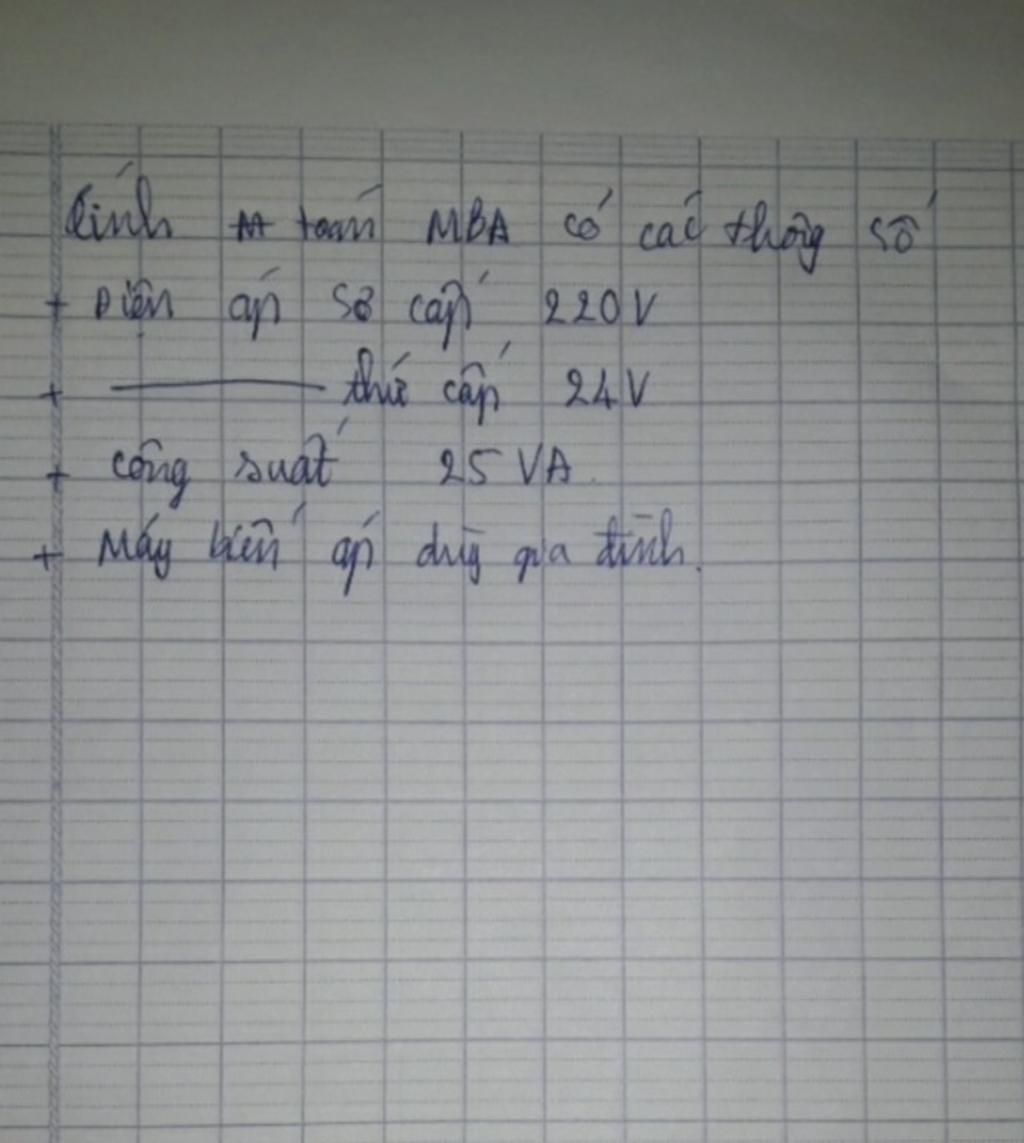 tính toán MBA có các thông số
+ Điện áp sơ cấp 220V
+ ——— thứ cấp 24V
+ công suất 25 VA.
+ Máy biến áp dùng gia đình.